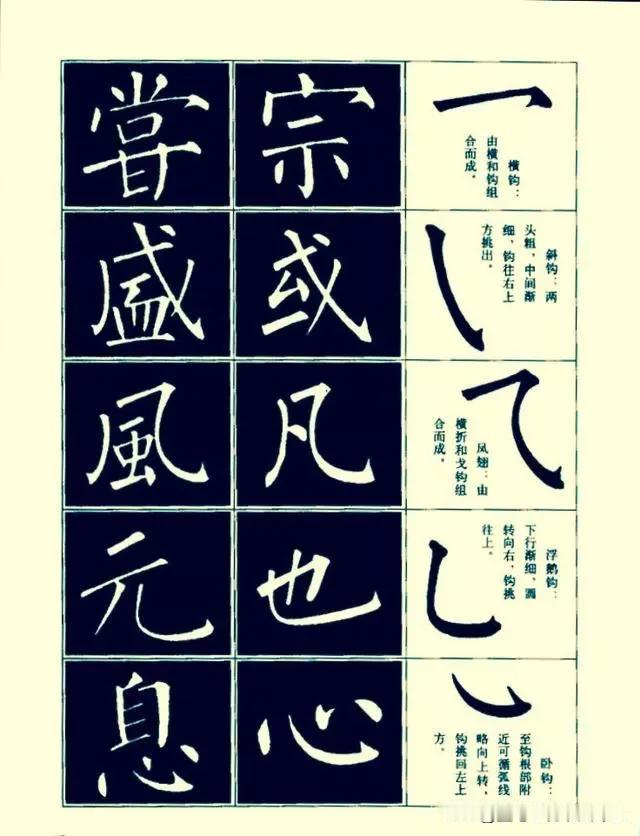 横钩：
由横和钩组
合而成。
宗
嘗
斜钩：两
头粗，中间渐
细，钩往右上
方挑出。
或
盛
凤翅：由
横折和戈钩组
合而成。
凡
風
浮鹅钩：
下行渐细，圆
转向右，钩挑
往上。
也
元
卧钩：
至钩根部附
近可循弧线
略向上转，
钩挑回左上
方。
心
息